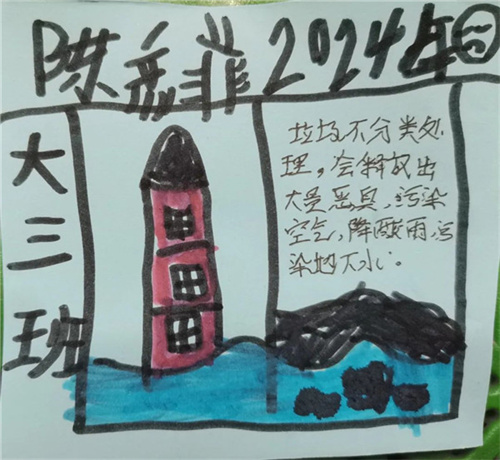 陈彦菲2024年
大三班
垃圾不分类处
理,会释放出
大量恶臭、污染
空气,降酸雨污
染地下水。